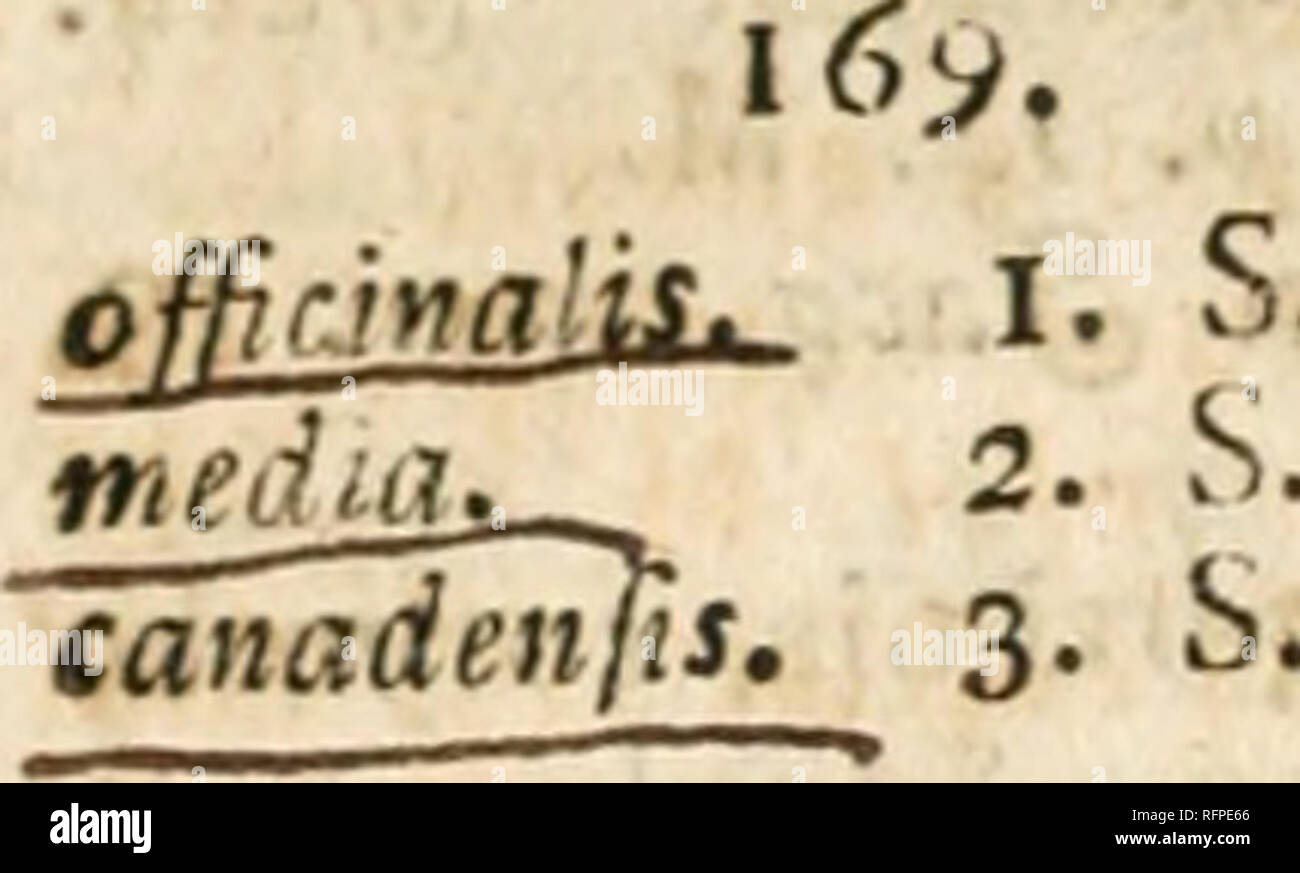 169.
officinalis. 1. S.
media. 2. S.
canadenſis. 3. S.
alamy
Image ID: RFPE66
www.alamy.com